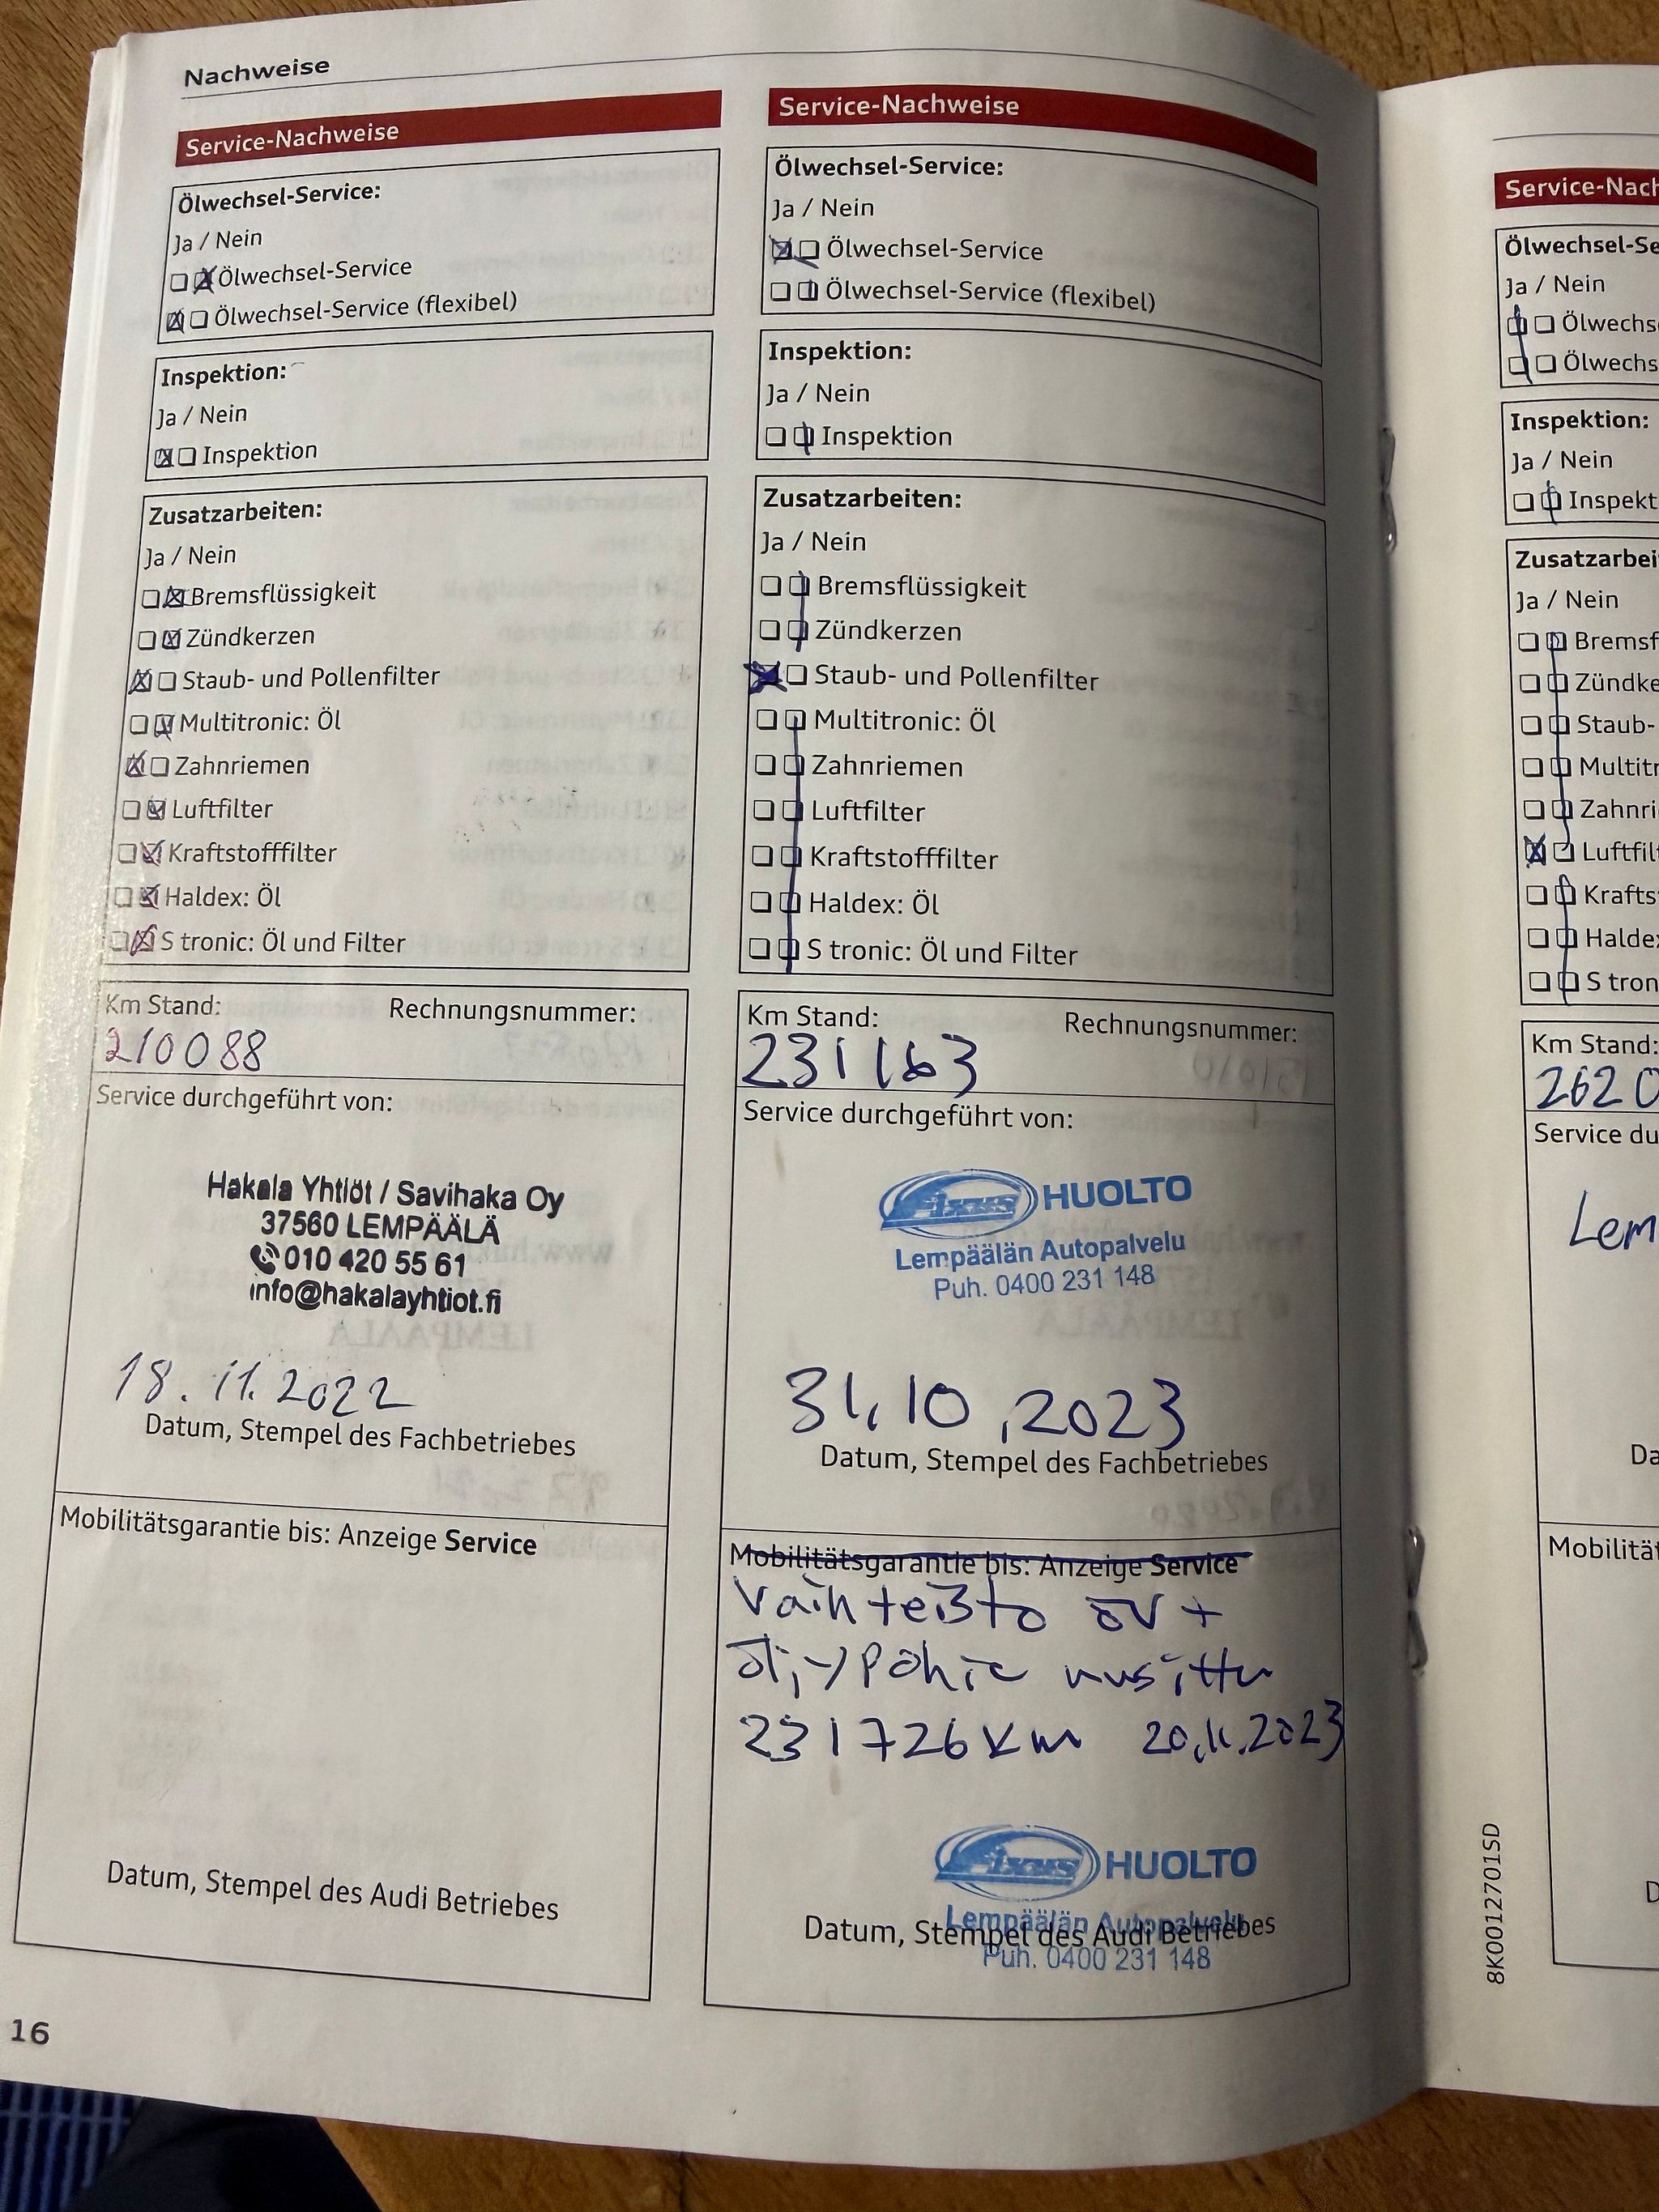 Nachweise
Service-Nachweise
Ölwechsel-Service:
Ja / Nein
Ölwechsel-Service
Ölwechsel-Service (flexibel)
Inspektion:
Ja / Nein
Inspektion
Zusatzarbeiten:
Ja / Nein
Bremsflüssigkeit
Zündkerzen
Staub- und Pollenfilter
Multitronic: Öl
Zahnriemen
Luftfilter
Kraftstofffilter
Haldex: Öl
S tronic: Öl und Filter
Km Stand: Rechnungsnummer:
210088
Service durchgeführt von:
Hakala Yhtiöt / Savihaka Oy
37560 LEMPÄÄLÄ
010 420 55 61
info@hakalayhtiot.fi
18.11.2022
Datum, Stempel des Fachbetriebes
Mobilitätsgarantie bis: Anzeige Service
Datum, Stempel des Audi Betriebes
16
Service-Nachweise
Ölwechsel-Service:
Ja / Nein
Ölwechsel-Service
Ölwechsel-Service (flexibel)
Inspektion:
Ja / Nein
Inspektion
Zusatzarbeiten:
Ja / Nein
Bremsflüssigkeit
Zündkerzen
Staub- und Pollenfilter
Multitronic: Öl
Zahnriemen
Luftfilter
Kraftstofffilter
Haldex: Öl
S tronic: Öl und Filter
Km Stand: Rechnungsnummer:
231163
Service durchgeführt von:
Fixus HUOLTO
Lempäälän Autopalvelu
Puh. 0400 231 148
31.10.2023
Datum, Stempel des Fachbetriebes
Mobilitätsgarantie bis: Anzeige Service
Vaihteisto öV +
öljypohja uusittu
231726 km 20.11.2023
Fixus HUOLTO
Lempäälän Autopalvelu
Datum, Stempel des Audi Betriebes
Puh. 0400 231 148
Service-Nach
Ölwechsel-Se
Ja / Nein
Ölwechs
Ölwechs
Inspektion:
Ja / Nein
Inspekt
Zusatzarbei
Ja / Nein
Bremsf
Zündke
Staub-
Multitr
Zahnri
Luftfil
Krafts
Haldex
S tron
Km Stand:
2620
Service du
Lem
Da
Mobilität
D
8K0012701SD